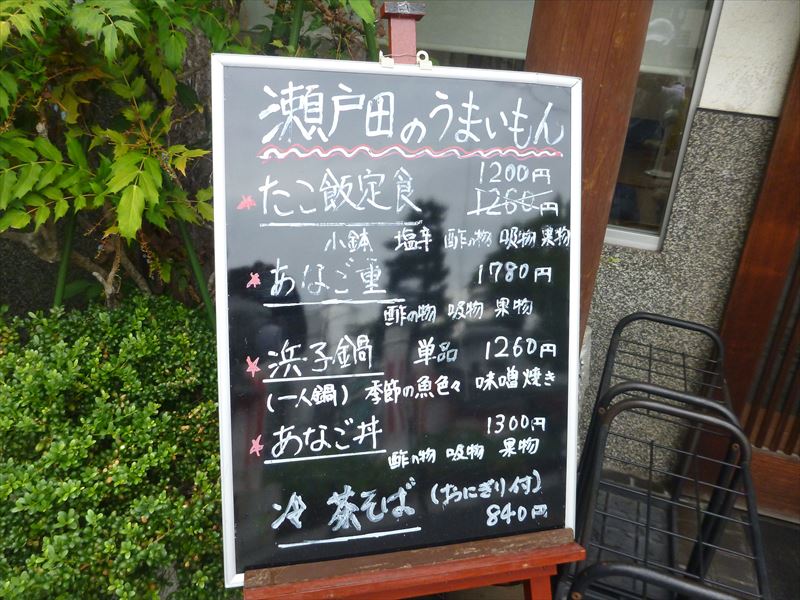 瀬戸田のうまいもん
たこ飯定食 1200円
1260円
小鉢 塩辛 酢の物 吸物 果物
あなご重 1780円
酢の物 吸物 果物
浜子鍋 単品 1260円
(一人鍋) 季節の魚色々 味噌焼き
あなご丼 1300円
酢の物 吸物 果物
冷 茶そば (おにぎり付)
840円